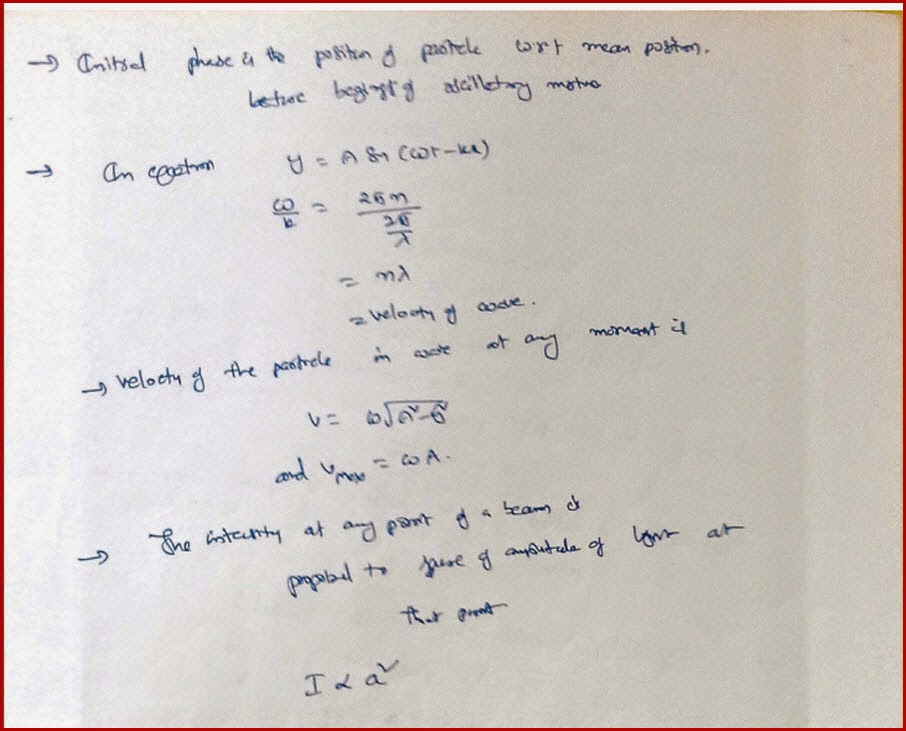 → Initial phase is the position of particle w.r.t mean position.
before begining of oscillatory motion
→ In equation y = A Sin (ωt-kx)
ω/k = 2πn / (2π/λ)
= nλ
= velocity of wave.
→ velocity of the particle in wave at any moment is
v = ω√(a²-
and vmax = ωA.
→ The intensity at any point of a beam is
to square of amplitude of light at
that point
I ∝ a²